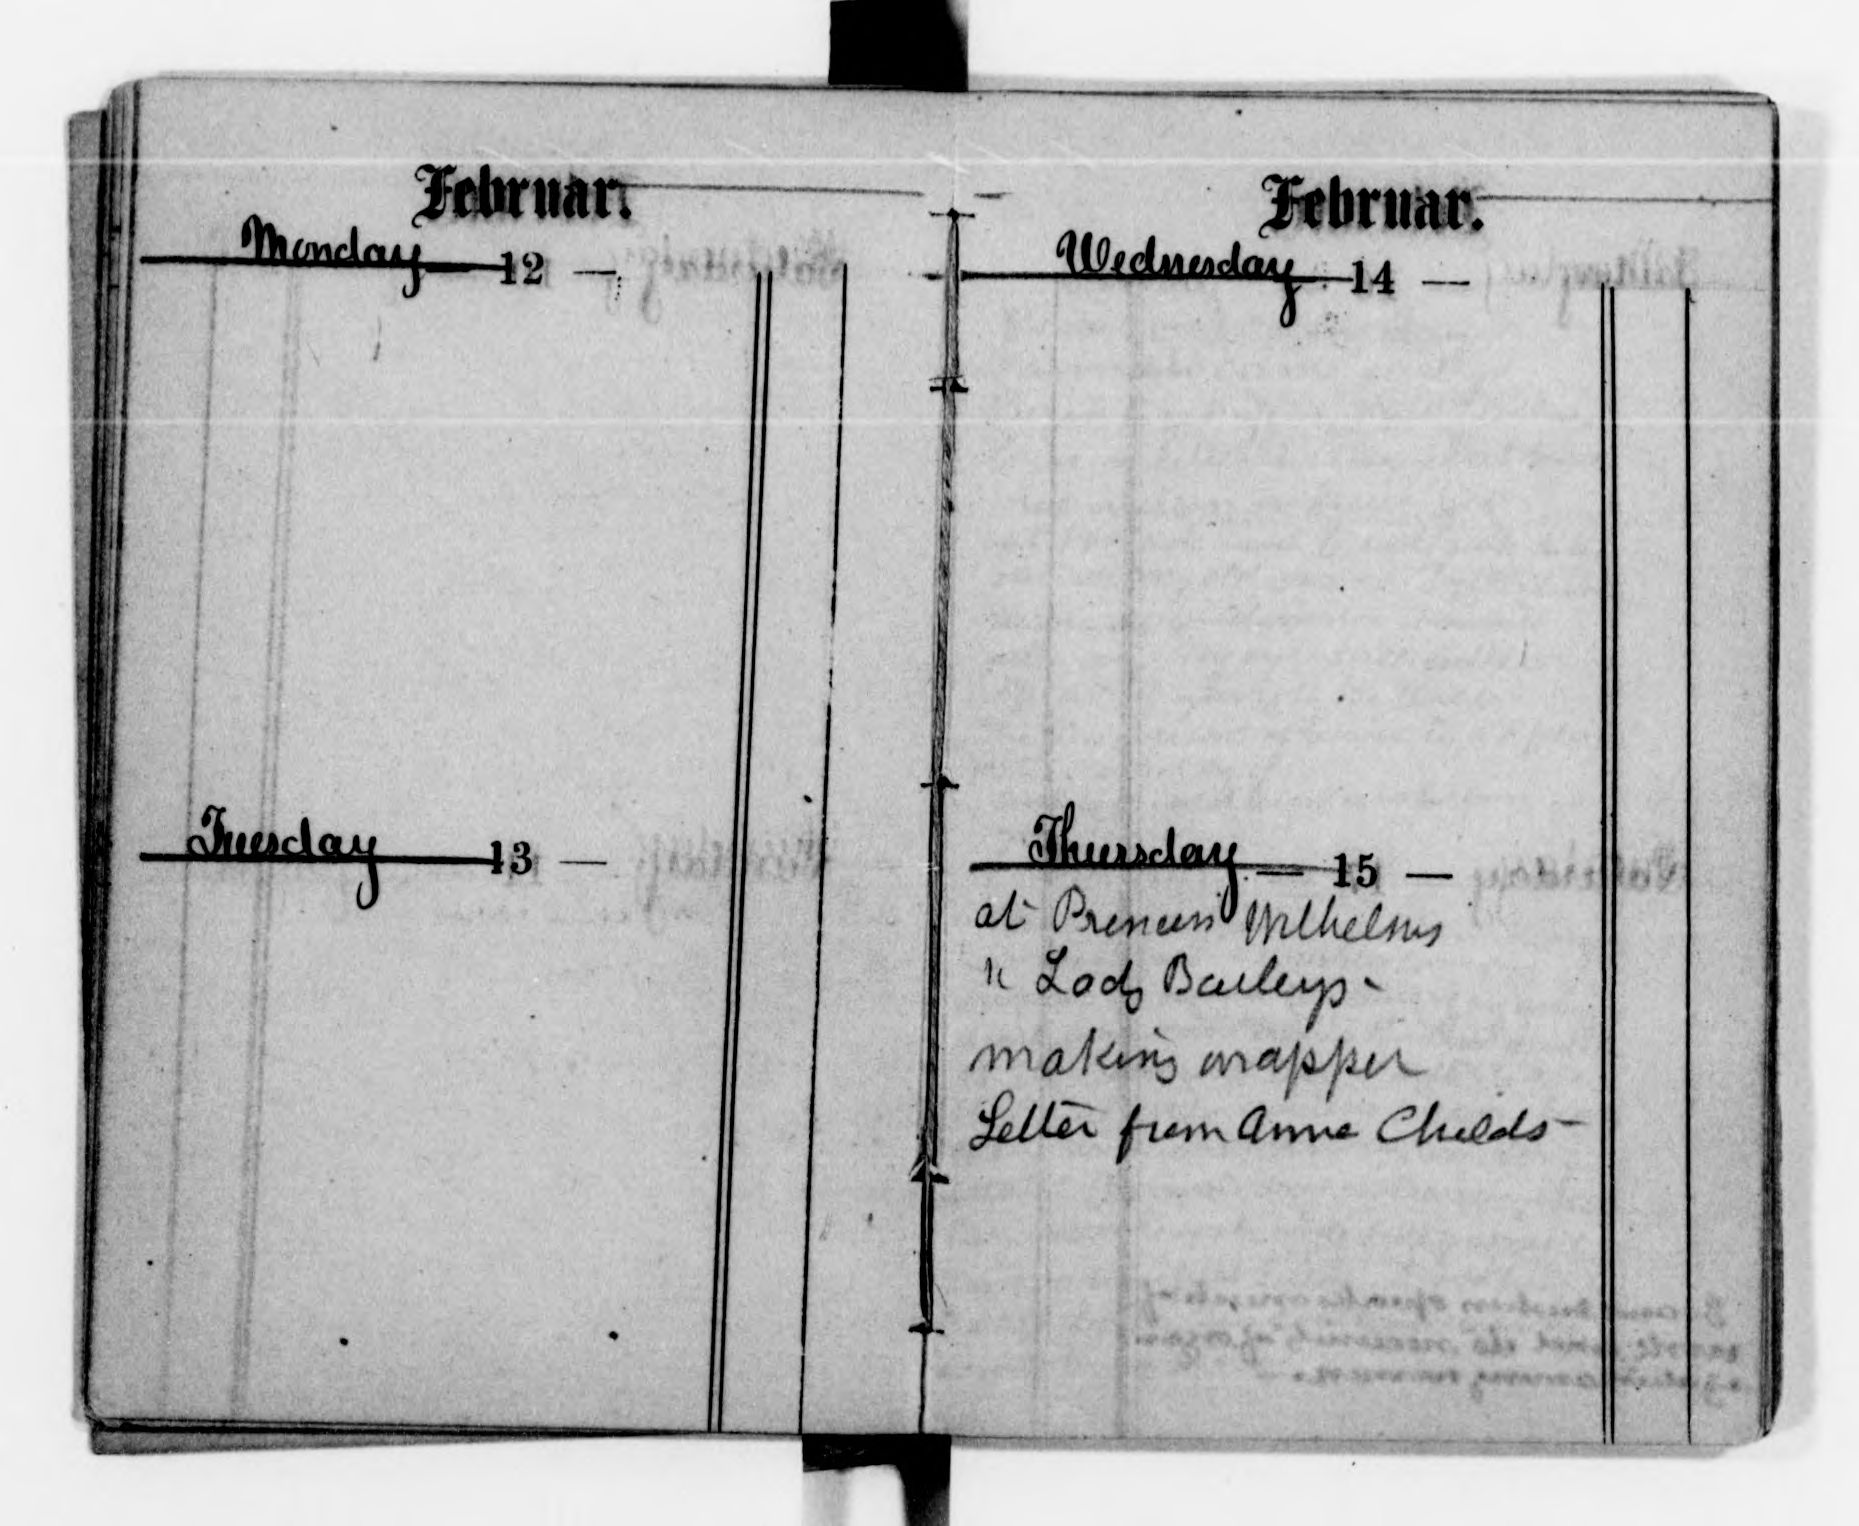 Februar.
Monday 12 —
Tuesday 13 —
Februar.
Wednesday 14 —
Thursday — 15 —
at Princess Wilhelms
" Lady Baileys -
making wrapper
Letter from Anna Childs -